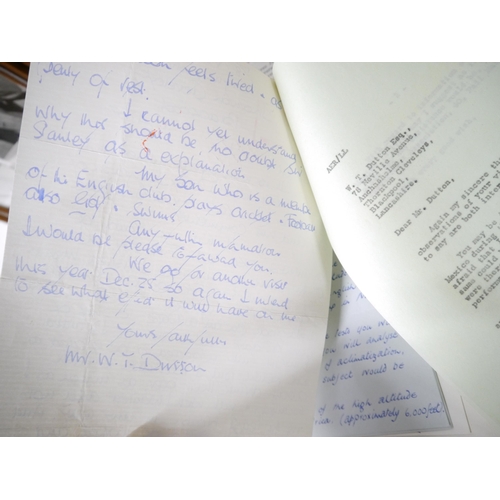 feels tired. a
plenty of rest.
I cannot yet understand
Why this should be no doubt Sir
Stanley as a explanation
My Son who is a member
of his English club. plays cricket.
also Golf. Swims
Any further information
I would be pleased to forward you.
We go for another visit
this year Dec: 28 so again I intend
to see what effect it will have on me
Yours faithfully
Mr. W. T.
ACR/LL
W. T. Dutton Esq.,
Neville Avenue,
Anchorsholme,
Thornton Cleveleys,
Blackpool,
Lancashire.
Dear Mr. Dutton,
Again my sincere
observations of your vi
to say are both inte
You may be
Mexico during
afraid that
same
could
were
perfor
you
will analyse
of acclimatization,
subject would be
of the high altitude
(approximately 6,000 feet